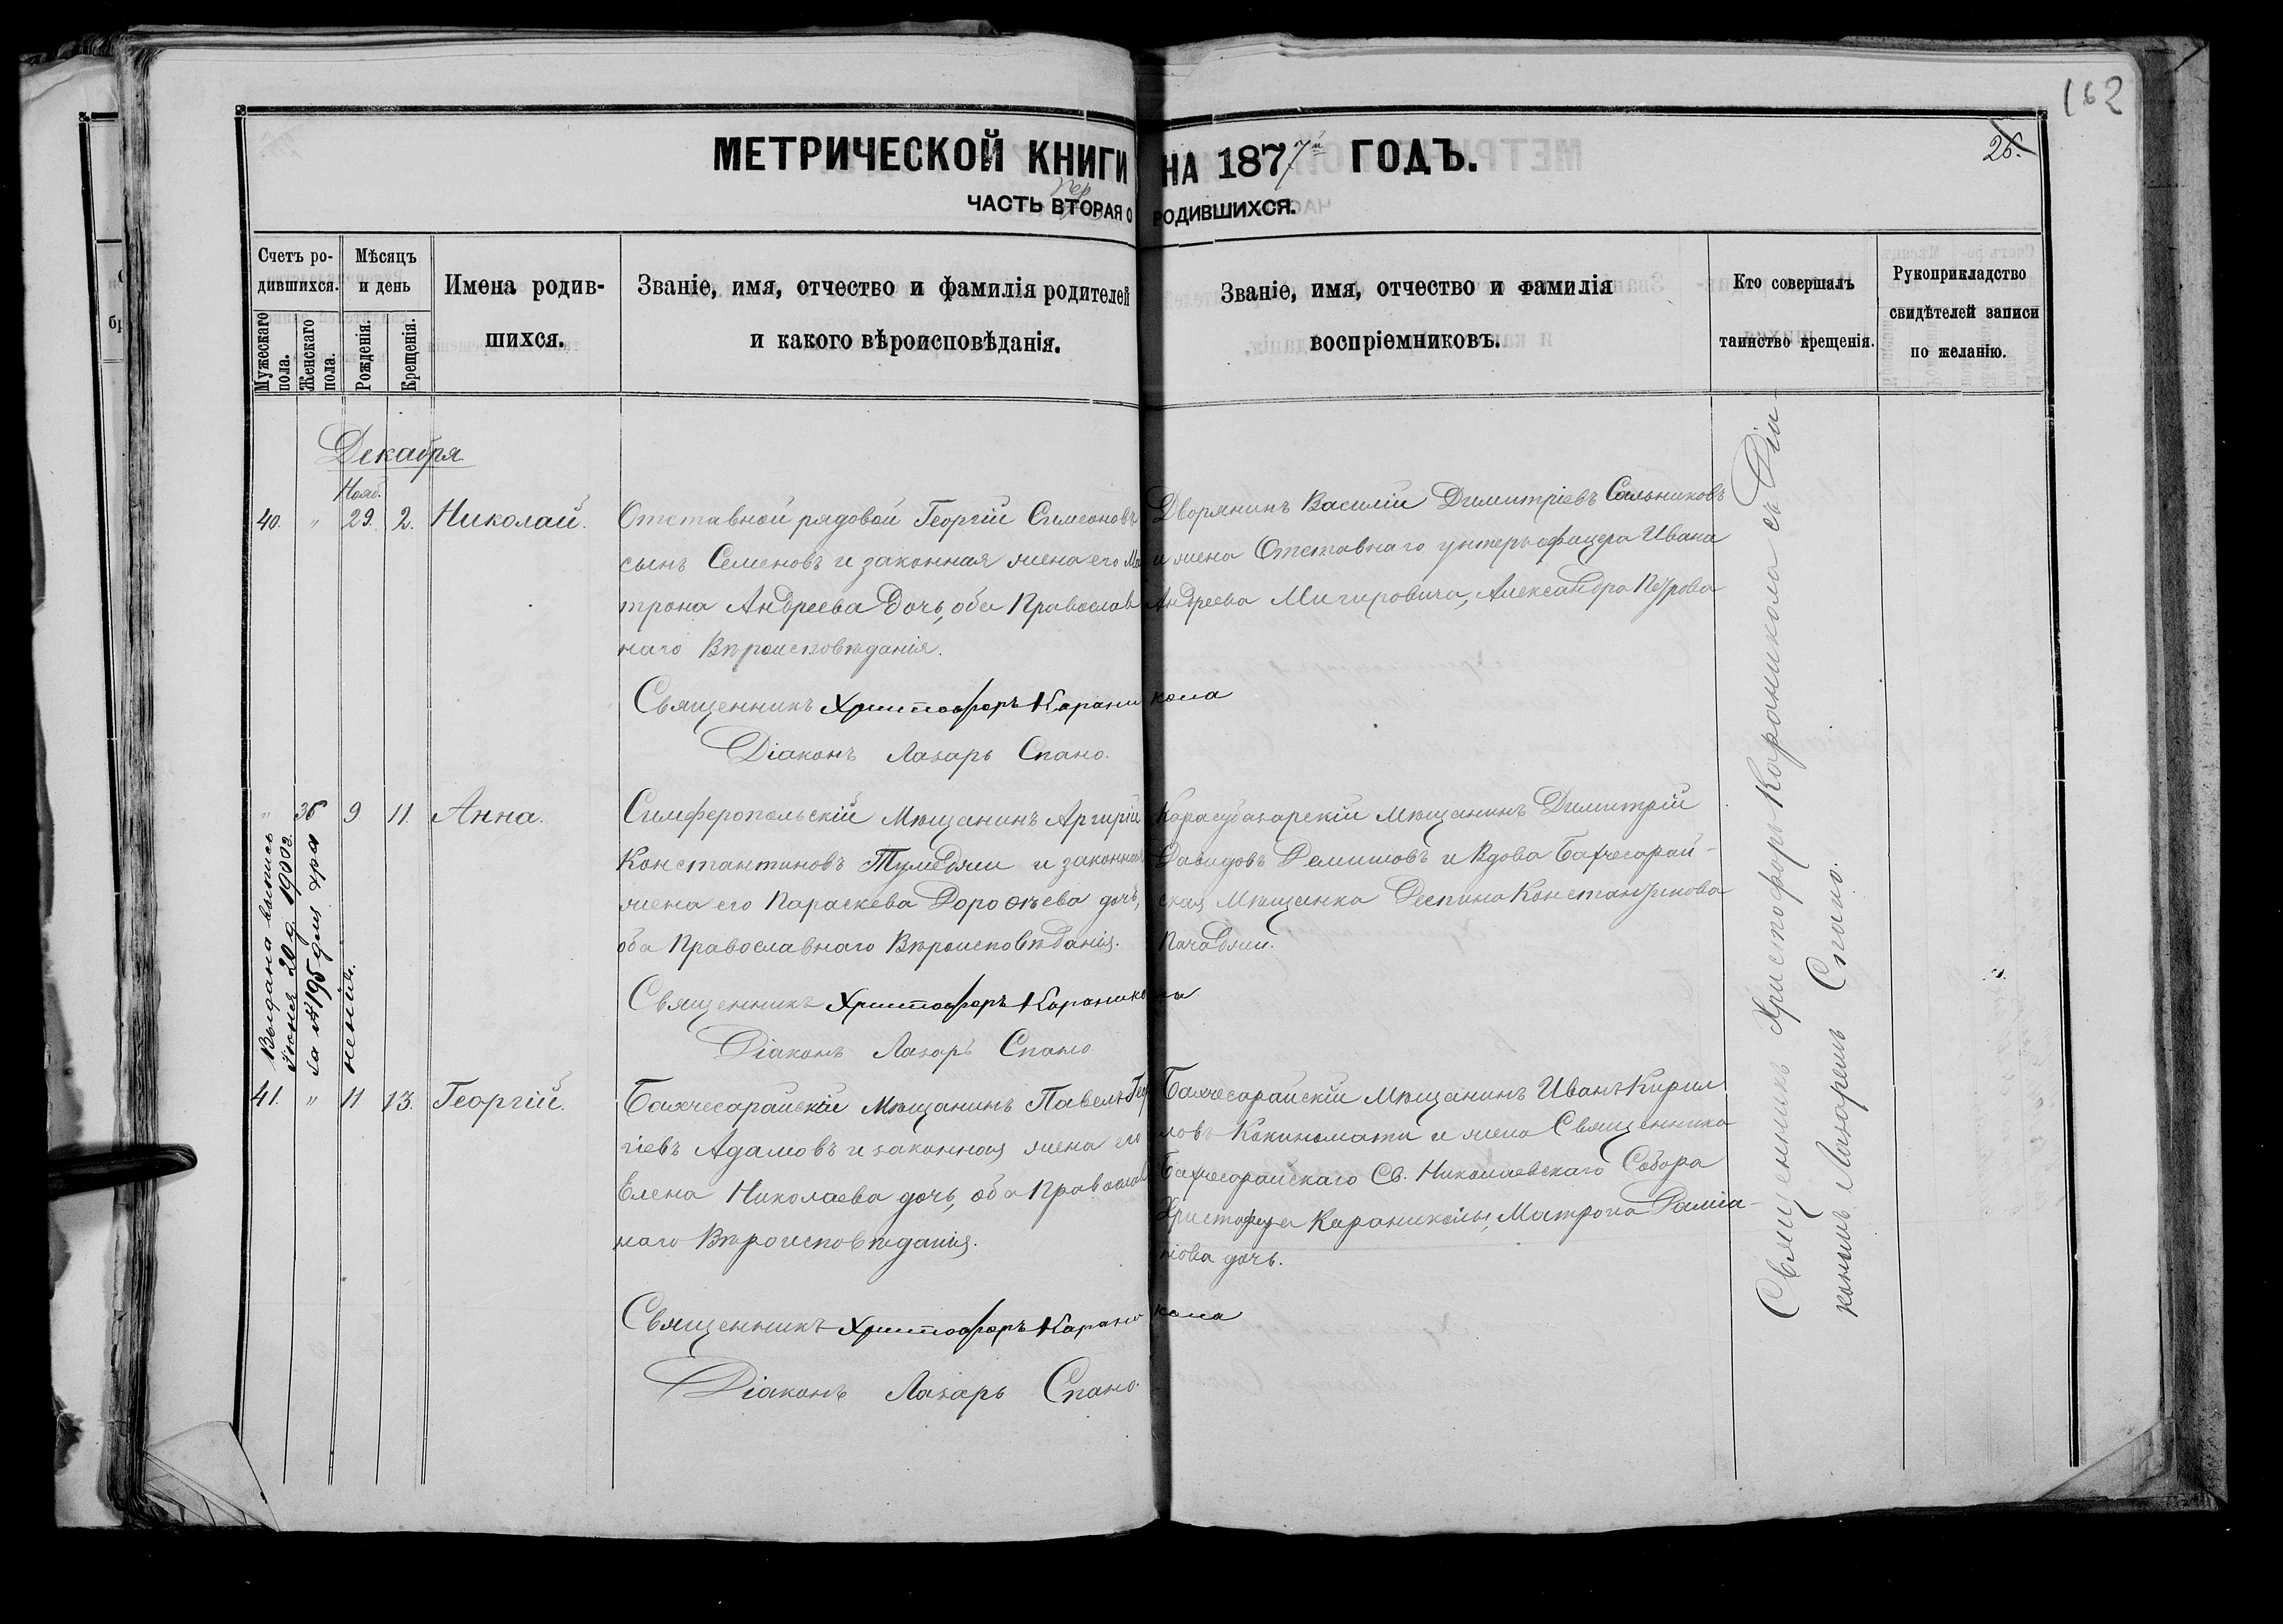 162
26.
МЕТРИЧЕСКОЙ КНИГИ НА 1877й ГОДЪ.
пер
ЧАСТЬ ВТОРАЯ О РОДИВШИХСЯ.
Счетъ ро-
дившихся.
Мужескаго пола.
Женскаго пола.
Мѣсяцъ
и день
Рожденія.
Крещенія.
Имена родив-
шихся.
Званіе, имя, отчество и фамилія родителей
и какого вѣроисповѣданія.
Званіе, имя, отчество и фамилія
воспріемниковъ.
Кто совершалъ
таинство крещенія.
Рукоприкладство
свидѣтелей записи
по желанію.
Декабря.
Нояб.
40. " 29. 2. Николай.
Отставной рядовой Георгій Симеоновъ
сынъ Семеновъ и законная жена его Ма
трона Андреева дочь, оба Православ
наго Вѣроисповѣданія.
Священникъ Христофоръ Караникола
Діаконъ Лазарь Спано.
Дворянинъ Василій Димитріевъ Сальниковъ
и жена Отставнаго унтеръ офицера Ивана
Андреева Мигировича, Александра Петрова
" 36 9 11. Анна.
Симферопольскій Мѣщанинъ Аргирій
Константиновъ Тумеджи и законная
жена его Параскева Дороѳѣева дочь,
оба Православнаго Вѣроисповѣданія.
Священникъ Христофоръ Караникола
Діаконъ Лазарь Спано
Карасубазарскій Мѣщанинъ Димитрій
Давидовъ Демишовъ и Вдова Бахчесарай-
ская Мѣщанка Деспина Константинова
Пачаджи.
Выдана выпись
Іюня 20 д 1900 г.
за № 195 для хра
ненія.
41. " 11 13. Георгій.
Бахчесарайскій Мѣщанинъ Павелъ Геор
гіевъ Адамовъ и законная жена его
Елена Николаева дочь, оба Православ
наго Вѣроисповѣданія.
Священникъ Христофоръ Караникола
Діаконъ Лазарь Спано.
Бахчесарайскій Мѣщанинъ Иванъ Кирил
ловъ Кокиномати и жена Священника
Бахчесарайскаго Св. Николаевскаго Собора
Христофора Караниколы, Матрона Даміа-
нова дочь.
Священникъ Христофоръ Караникола съ Діа-
кономъ Лазаремъ Спано.